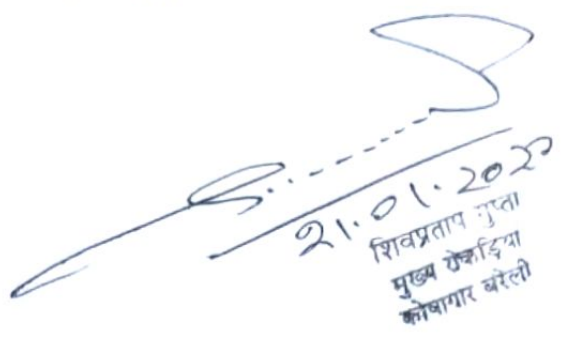 21.01.202
शिवप्रताप गुप्ता
मुख्य रोकड़िया
कोषागार बरेली